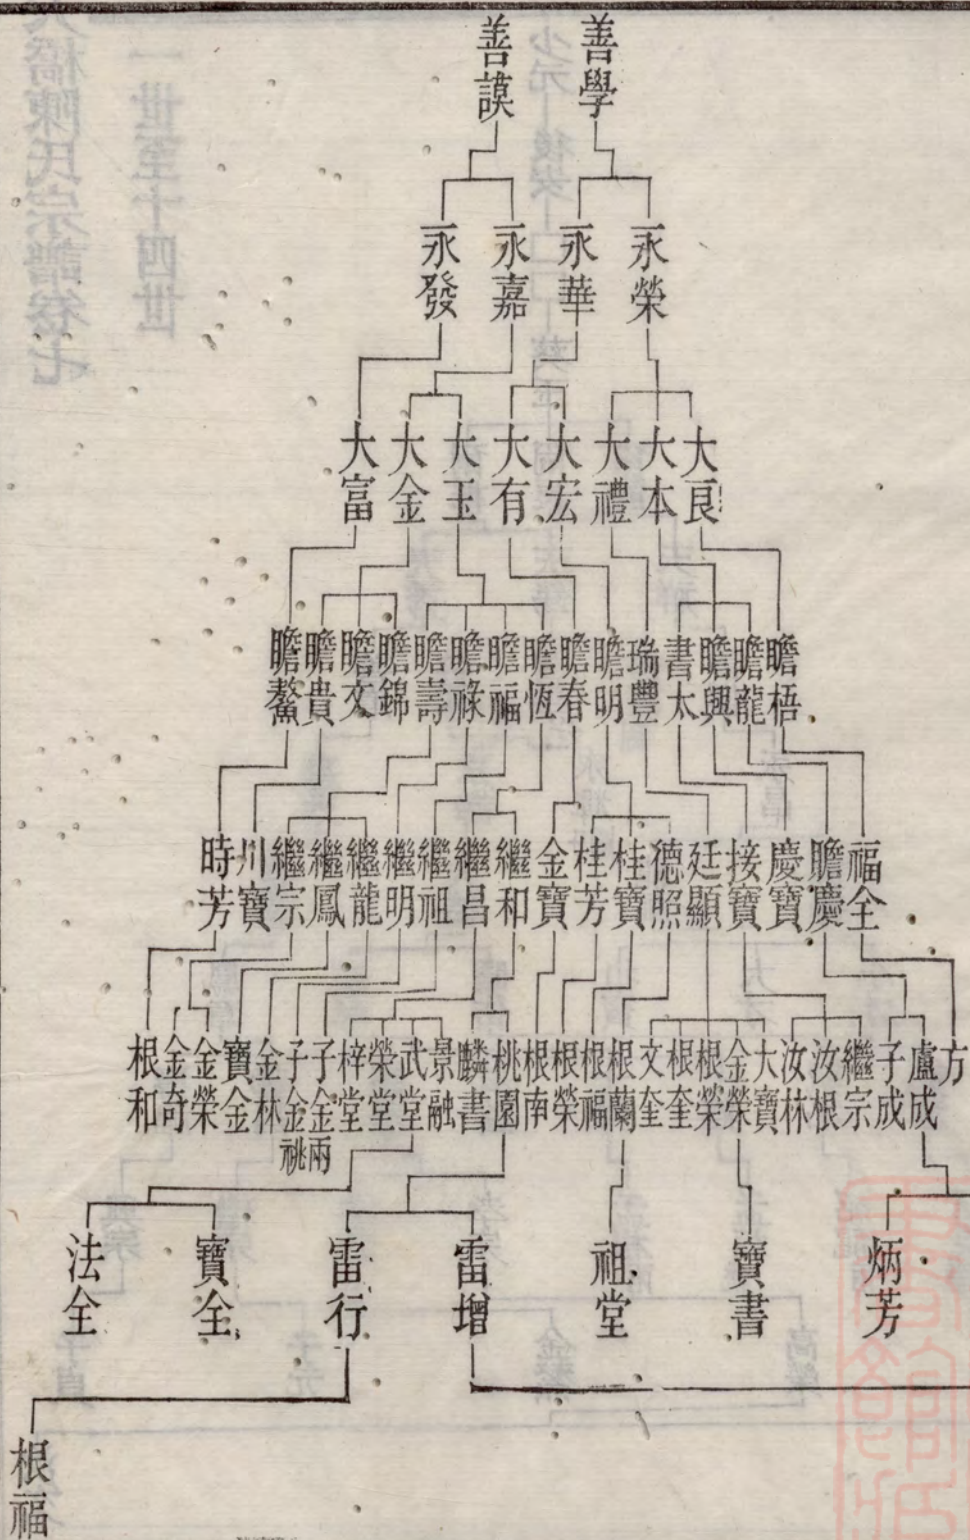 善學
善謨
永榮
永華
永嘉
永發
大良
大本
大禮
大宏
大有
大玉
大金
大富
瞻梧
瞻龍
瞻興
書太
瑞豐
瞻明
瞻春
瞻恆
瞻福
瞻祿
瞻壽
瞻錦
瞻文
瞻貴
瞻鰲
福全
瞻慶
慶寶
接寶
廷顯
德照
桂寶
桂芳
金寶
繼和
繼昌
繼祖
繼明
繼龍
繼鳳
繼宗
川寶
時芳
方
盧成
子成
繼宗
汝根
汝林
大寶
金榮
根榮
根奎
文奎
根蘭
根福
根榮
根南
桃園
麟書
景融
武堂
榮堂
梓堂
子金兩
子金祧
金林
寶金
金榮
金奇
根和
炳芳
寶書
祖堂
雷增
雷行
寶全
法全
根福